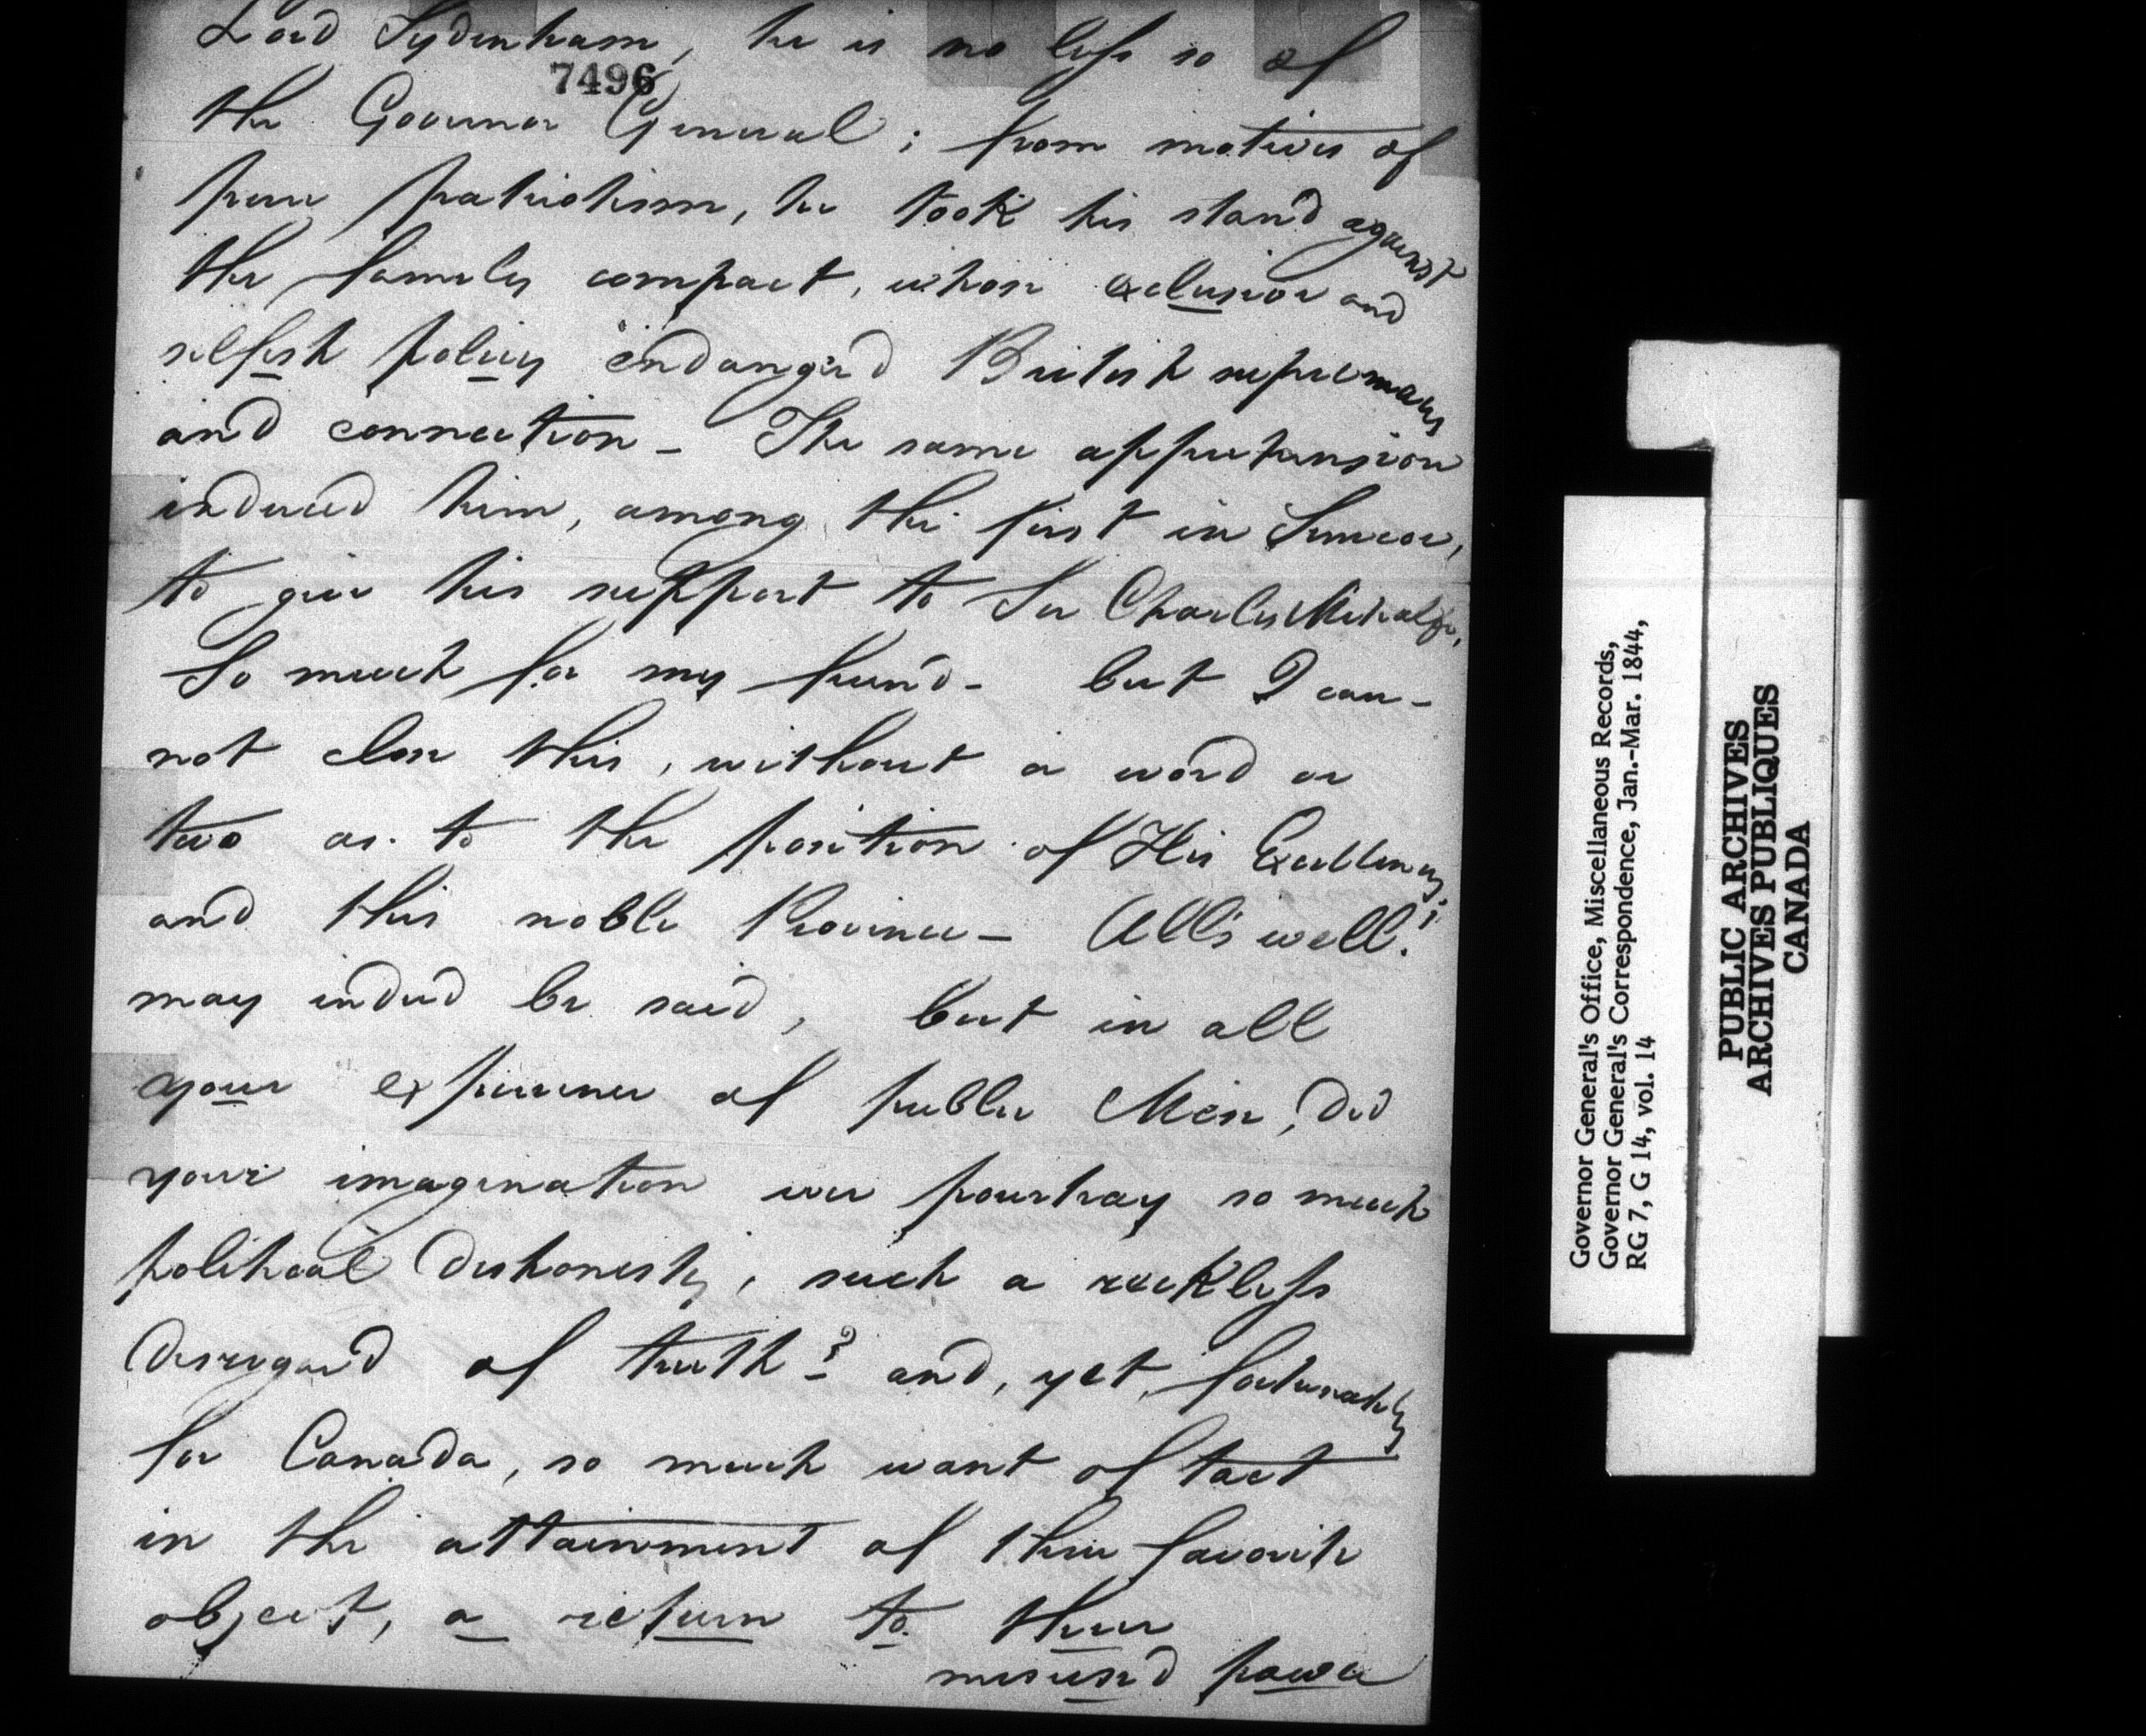 Lord Sydenham, he is no less so of
7496
the Governor General; from motives of
pure patriotism, he took his stand against
the family compact, whose exclusion and
selfish policy endangered British supremacy
and connection - The same apprehension
induced him, among the first in Simcoe,
to give his support to Sir Charles Metcalfe,
So much for my friend - but I can-
not close this, without a word or
two as to the position of His Excellency;
and this noble Province - All's well!
may indeed be said, but in all
your experience of public Men, did
your imagination ever pourtray so much
political dishonesty, such a reckless
disregard of truth? - and, yet, fortunately
for Canada, so much want of tact
in the attainment of their favorite
object, a return to their
misused power
Governor General's Office, Miscellaneous Records,
Governor General's Correspondence, Jan.-Mar. 1844,
RG 7, G 14, vol. 14
PUBLIC ARCHIVES
ARCHIVES PUBLIQUES
CANADA